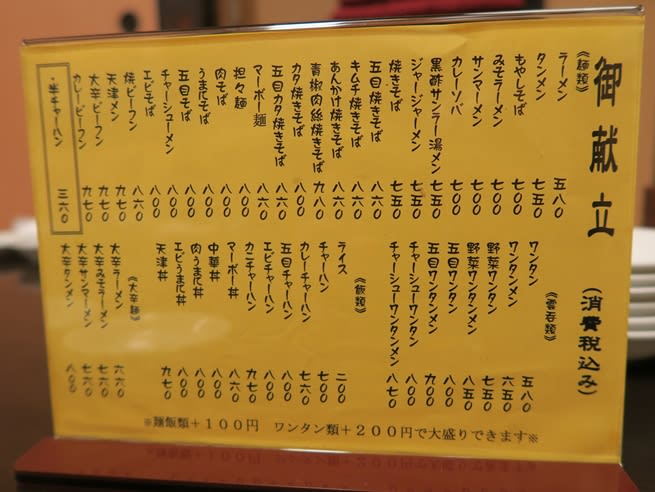 御献立
(消費税込み)
《麺類》
ラーメン 五八〇
タンメン 七五〇
もやしそば 七〇〇
みそラーメン 七〇〇
サンマーメン 七〇〇
カレーソバ 七〇〇
黒酢サンラー湯メン 七五〇
ジャージャーメン 七五〇
焼きそば 七五〇
五目焼きそば 八六〇
キムチ焼きそば 八六〇
あんかけ焼きそば 八六〇
青椒肉絲焼きそば 九八〇
カタ焼きそば 八〇〇
五目カタ焼きそば 八六〇
マーボー麺 八六〇
担々麺 八〇〇
肉そば 八〇〇
うまにそば 八〇〇
五目そば 八〇〇
チャーシューメン 八〇〇
エビそば 八〇〇
焼ビーフン 八六〇
天津メン 九七〇
大辛ビーフン 九七〇
カレービーフン 九七〇
・半チャーハン 三六〇
《雲呑類》
ワンタン 五八〇
ワンタンメン 六五〇
野菜ワンタン 七五〇
野菜ワンタンメン 八五〇
五目ワンタン 八〇〇
五目ワンタンメン 九〇〇
チャーシューワンタン 八〇〇
チャーシューワンタンメン 八七〇
《飯類》
ライス 二〇〇
チャーハン 七〇〇
カレーチャーハン 七六〇
五目チャーハン 八〇〇
エビチャーハン 八〇〇
カニチャーハン 九七〇
マーボー丼 八六〇
中華丼 八〇〇
肉うまに丼 八〇〇
エビうまに丼 八〇〇
天津丼 九七〇
《大辛麺》
大辛ラーメン 六六〇
大辛みそラーメン 七六〇
大辛サンマーメン 七六〇
大辛タンメン 八〇〇
※麺飯類＋１００円 ワンタン類＋２００円で大盛りできます※